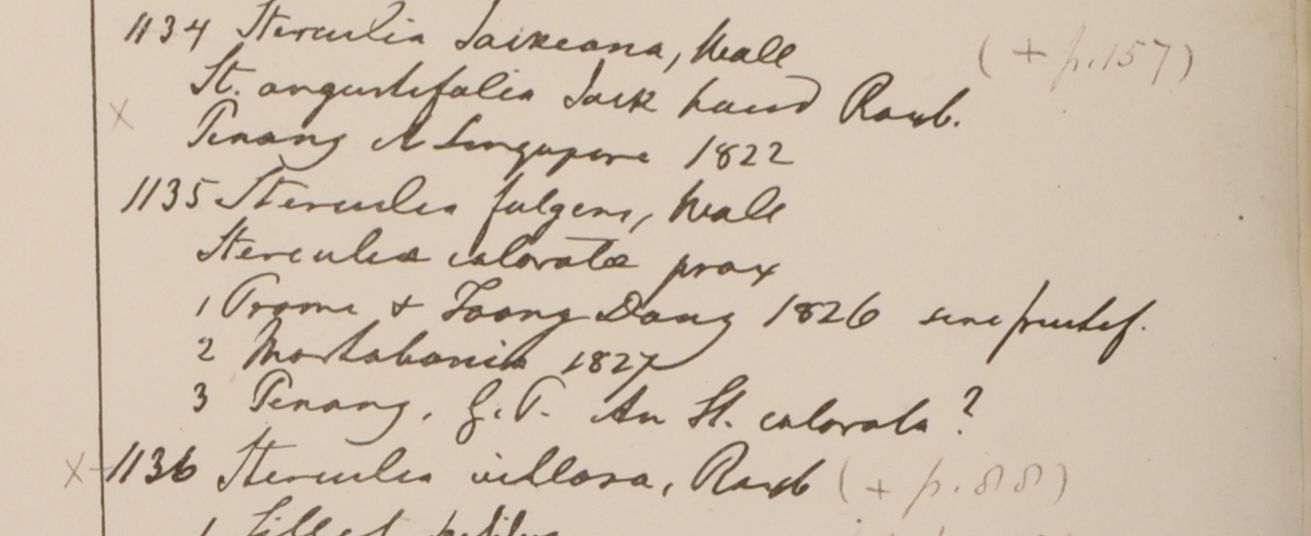 1134 Sterculia Jackeana, Wall (+ p. 157)
St. angustifolia Jack haud Roxb.
x Penang & Singapore 1822
1135 Sterculia fulgens, Wall
Sterculiæ coloratæ prox
1 Prome & Toong Dong 1826 sine fructif.
2 Martabania 1827
3 Penang, G.P. An St. colorata?
x 1136 Sterculia villosa, Roxb (+ p. 88)
1